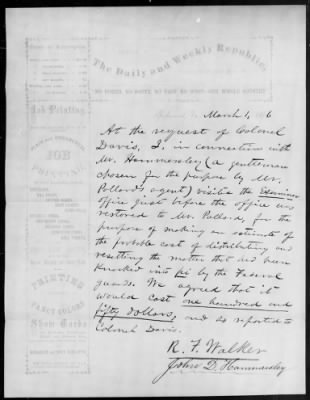 The Daily and Weekly Republic.
Job Printing
JOB
PRINTING
PRINTING
FANCY COLORS
Show Cards
March 1, 1866
At the request of Colonel
Davis, I, in connection with
Mr. Hammersley (a gentleman
chosen for the purpose by Mr.
Pollard's agent) visited the Examiner
office just before the office was
restored to Mr. Pollard, for the
purpose of making an estimate of
the probable cost of distributing and
resetting the matter that had been
knocked into pi by the Federal
guards. We agreed that it
would cost one hundred and
fifty dollars, and so reported to
Colonel Davis.
R. F. Walker
John D. Hammersley